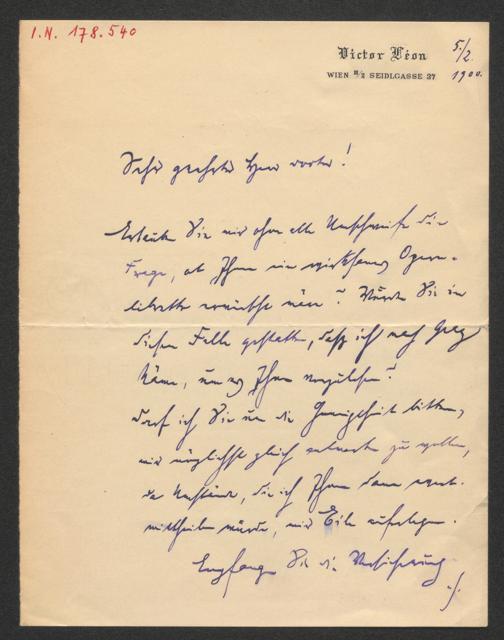 I.N. 178.540
Victor Léon 5./2.
WIEN III/2 SEIDLGASSE 27 1900.
Sehr geehrter Herr Doctor!
Erlauben Sie mir ohne alle Umschweife die
Frage, ob Ihnen ein wirksames Opern-
libretto erwünscht wäre? Würden Sie in
diesem Falle gestatten, daß ich nach Graz
käme, um es Ihnen vorzulesen?
Darf ich Sie um die Gewogenheit bitten,
mir möglichst gleich antworten zu wollen,
da Umstände, die ich Ihnen dann event.
mittheilen würde, mir Eile auferlegen.
Empfangen Sie die Versicherung